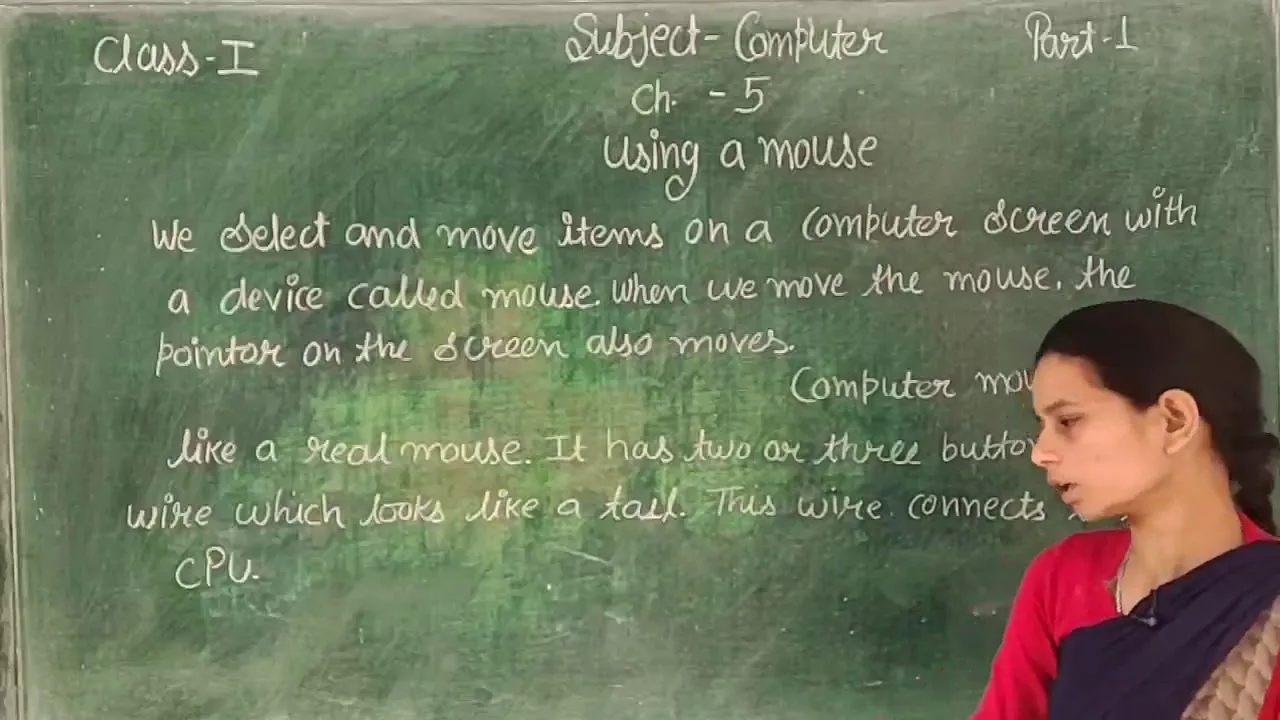 Class-I Subject- Computer Part-1
Ch. - 5
Using a mouse
We select and move items on a computer screen with
a device called mouse. When we move the mouse. the
pointor on the screen also moves.
Computer
like a real mouse. It has two or three
wire which looks like a tail. This wire connects
CPU.